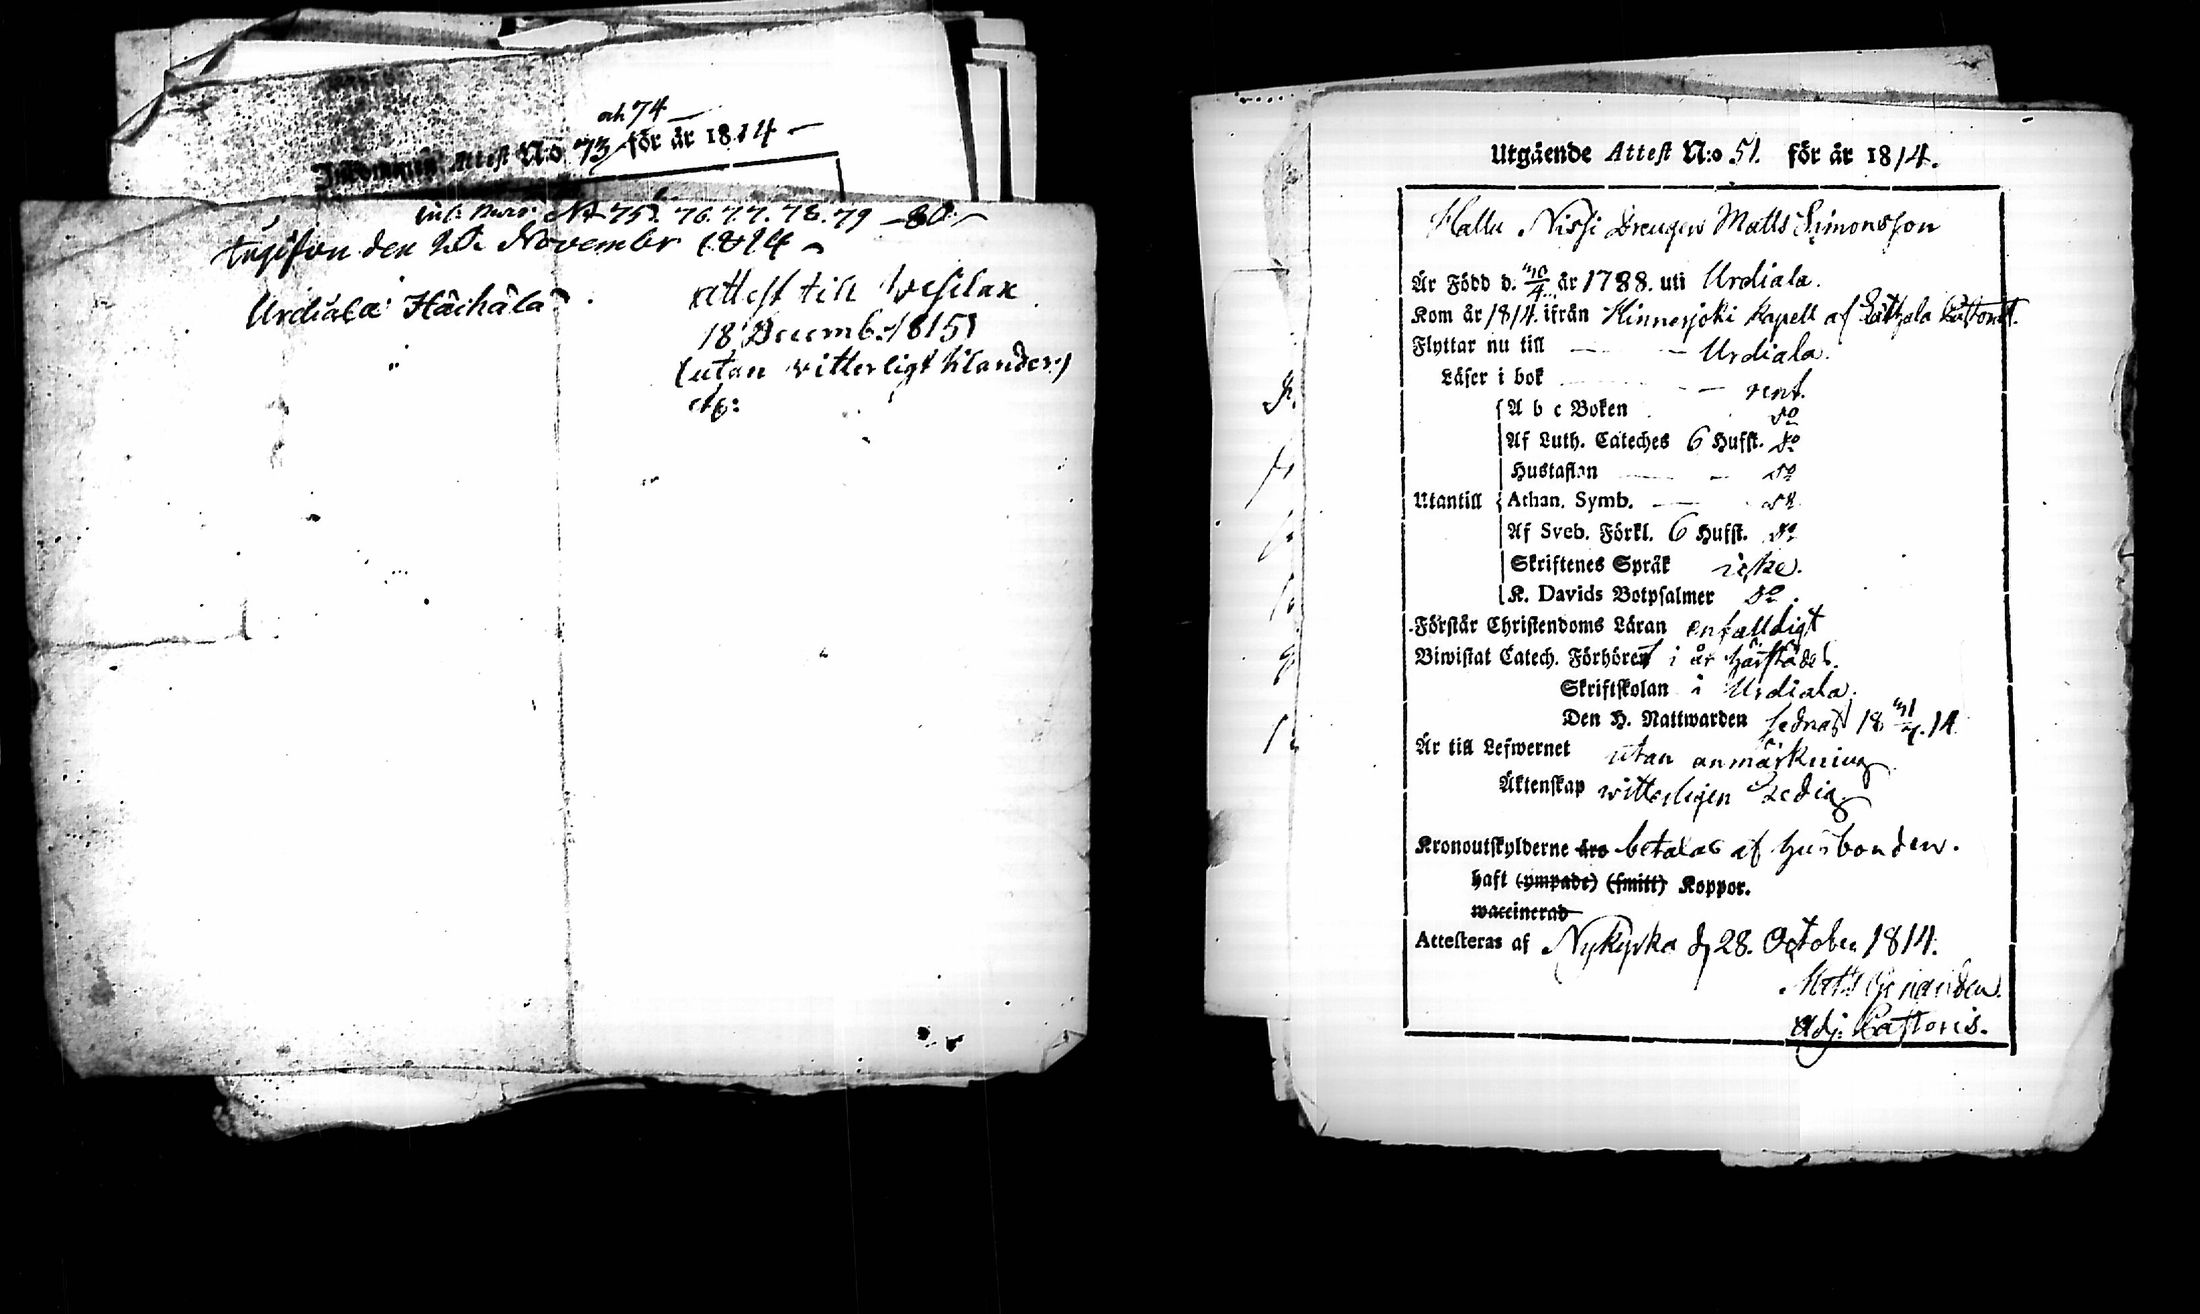 och 74
Attest N:o 73 för år 1814
No 75. 76. 77. 78. 79 - 80
den November 1814
Urdiala Hachala
attest till Wesilax
18 Decemb. 1815
(utan witterligt klander)
Utgående Attest N:o 51. för år 1814.
Nissi Drengen Matts Simonsson
Är Född d. år 1788. uti Urdiala.
Kom år 1814. ifrån Hinnerjoki Kapell af
Flyttar nu till — — Urdiala.
Läser i bok — rent.
A b c Boken do
Af Luth. Cateches 6 Hufst. do
Hustaflan — - do
Utantill Athan. Symb. — do
Af Sveb. Förkl. 6 Hufst. do
Skriftenes Språk icke.
K. Davids Botpsalmer do.
Förstår Christendoms Läran enfalldigt
Biwistat Catech. Förhöret i år härstädes.
Skriftskolan i Urdiala.
Den H. Nattwarden sednast 18 14
Är till Lefwernet utan anmärkning
Äktenskap witterligen Ledig.
Kronoutskylderne äro betalas af husbonden.
haft (ympade) (smitt) Koppor.
waccinerad
Attesteras af Nykyrka d. 28. October 1814.
Matts
Adj. Pastoris.